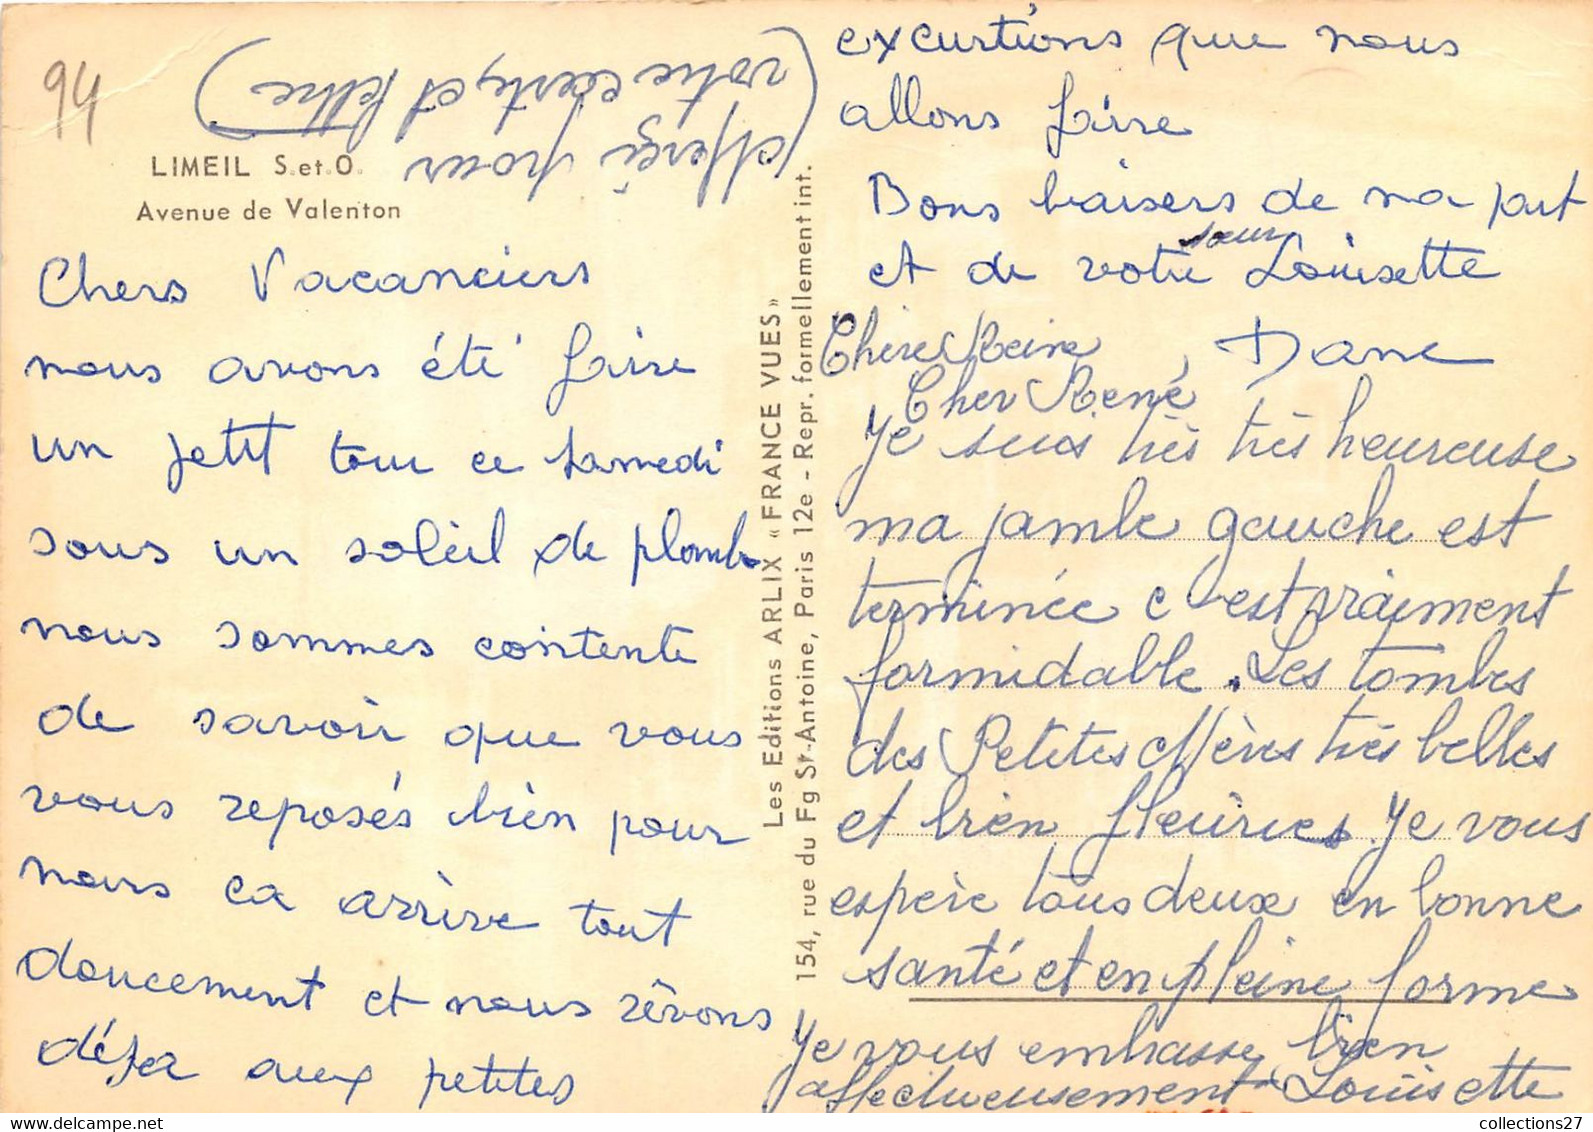 94
(Merci pour
votre carte, et lettre)
LIMEIL S.et.O.
Avenue de Valenton
Chers Vacanciers
nous avons été faire
un petit tour ce samedi
sous un soleil de plomb
nous sommes contente
de savoir que vous
vous reposés bien pour
nous ca arrive tout
doucement et nous rêvons
déja aux petites
Les Editions ARLIX «FRANCE VUES»
154, rue du Fg St-Antoine, Paris 12e - Repr. formellement int.
excurtions que nous
allons faire
Bons baisers de ma part
et de votre soeur Louisette
Dane
Chère Reine,
Cher René
Je suis très très heureuse
ma jambe gauche est
terminée c'est vraiment
formidable. Les tombes
des Petites Mères très belles
et bien fleuries. Je vous
espère tous deux en bonne
santé et en pleine forme
Je vous embrasse bien
affectueusement Louisette
https://www.collections27